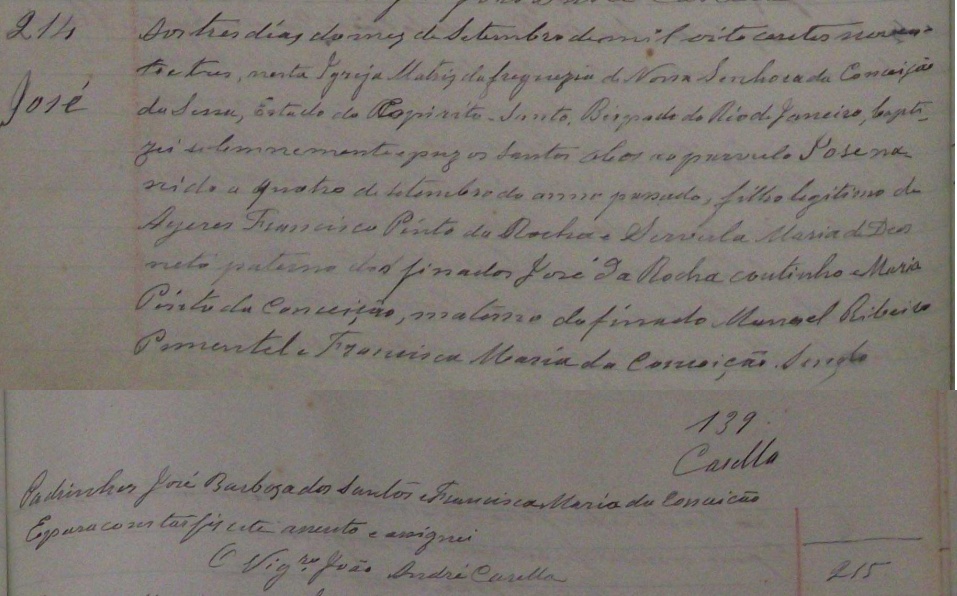 214
José
Aos tres dias do mez de Setembro de mil oito centos noven-
ta e tres, nesta Igreja Matriz da freguezia de Nossa Senhora da Conceição
da Serra, Estado do Espirito-Santo, Bispado do Rio de Janeiro, bapti-
zei solemnemente e puz os Santos oleos ao parvulo José nas
cido a quatro de setembro do anno passado, filho legitimo de
Ayeres Francisco Pinto da Rocha e Servula Maria de Deos
neto paterno dos finados José da Rocha coutinho e Maria
Pinto da Conceição, materno do finado Manoel Ribeiro
Pimentel e Francisca Maria da Conceição. Sendo
139.
Casella
Padrinhos José Barboza dos Santos e Francisca Maria da Conceição
E para constar fiz este assento e assignei
O Vigro João André Casella
215